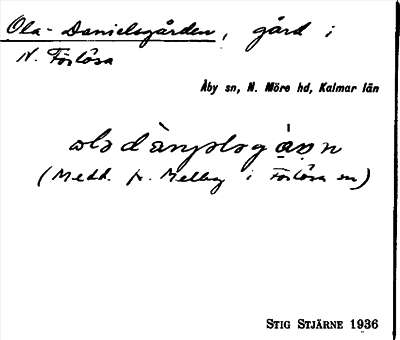 Ola-Danielsgården, gård i
N. Förlösa
Åby sn, N. Möre hd, Kalmar län
(Medd. fr. Melby i Förlösa sn)
STIG STJÄRNE 1936